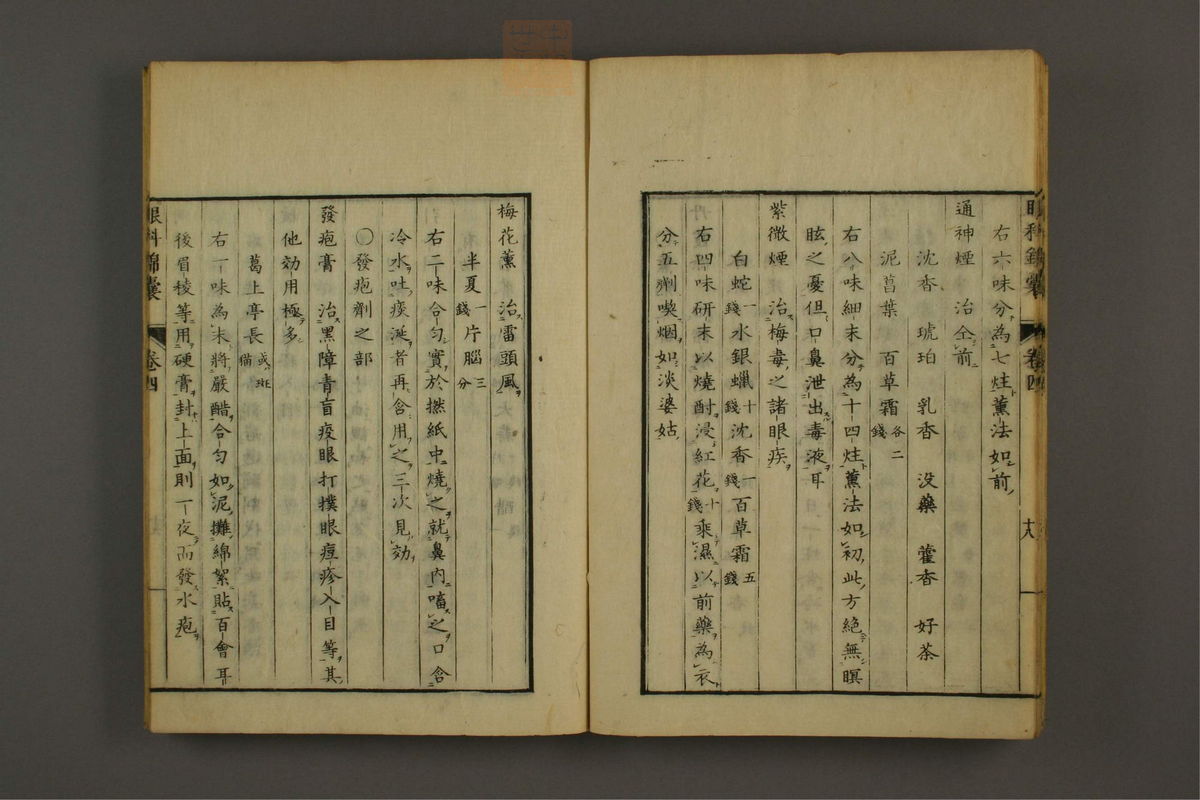 眼科錦囊 卷四
右六味分為七炷薰法如前
通神煙 治仝前
沈香 琥珀 乳香 没藥 藿香 好茶
泥菖葉 百草霜各二錢
右八味細末分為十四炷薰法如初此方絕無瞑
眩之憂但口鼻泄出毒液耳
紫微煙 治梅毒之諸眼疾
白蛇一錢 水銀蠟十錢 沈香一錢 百草霜五錢
右四味研末以燒酎浸紅花十錢乘濕以前藥為衣
分五劑喫烟如淡婆姑
梅花薰 治雷頭風
半夏一錢 片腦三分
右二味合勻實於撚紙中燒之就鼻內嗅之口含
冷水吐痰涎者再含用之三次見効
○發疱劑之部
發疱膏 治黑障青盲疫眼打撲眼痘疹入目等其
他効用極多
葛上亭長或斑猫
右一味為末將嚴醋合勻如泥攤綿絮貼百會耳
後眉稜等用硬膏封上面則一夜而發水疱
眼科錦囊 卷四